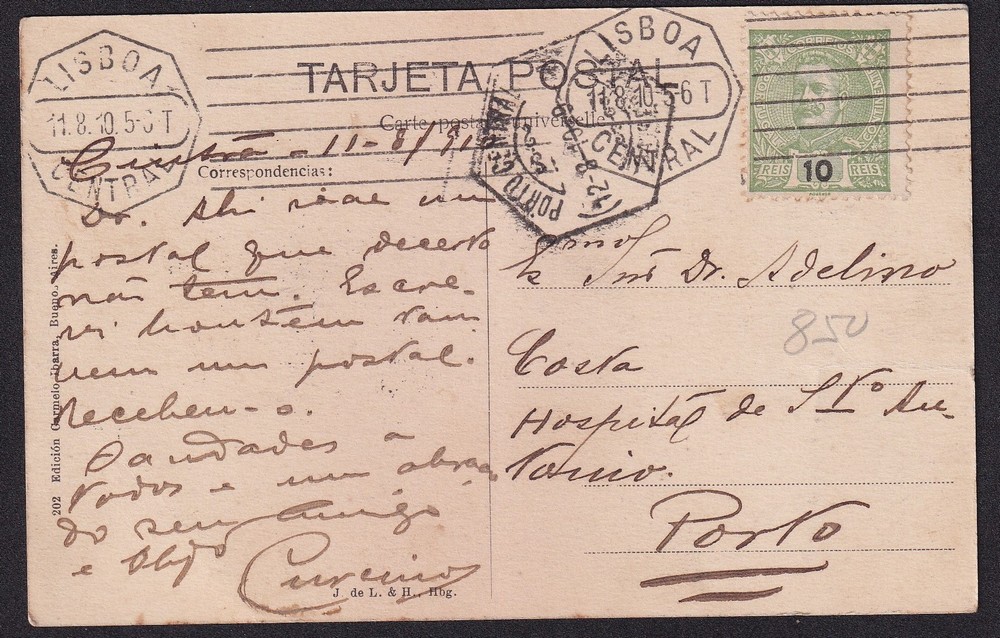 TARJETA POSTAL
Carte postale universelle
LISBOA
11.8.10.5-6 T
CENTRAL
LISBOA
11.8.10.5-6 T
CENTRAL
PORTO CENTRAL
CORREIOS
10
REIS REIS
Correspondencias:
Cintra - 11-8/910
Dr. Ahi vae um
postal que decerto
não tem. Escre-
vi hontem tam
bem um postal.
recebeu-o.
Saudades a
todos e um abraço
do seu amigo
e Obgo
Exmo
Snr Dr. Adelino
Costa
Hospital de Sto An-
tonio.
Porto
850
202 Edición Carmelo Ibarra, Bueno. Aires.
J. de L. & H., Hbg.